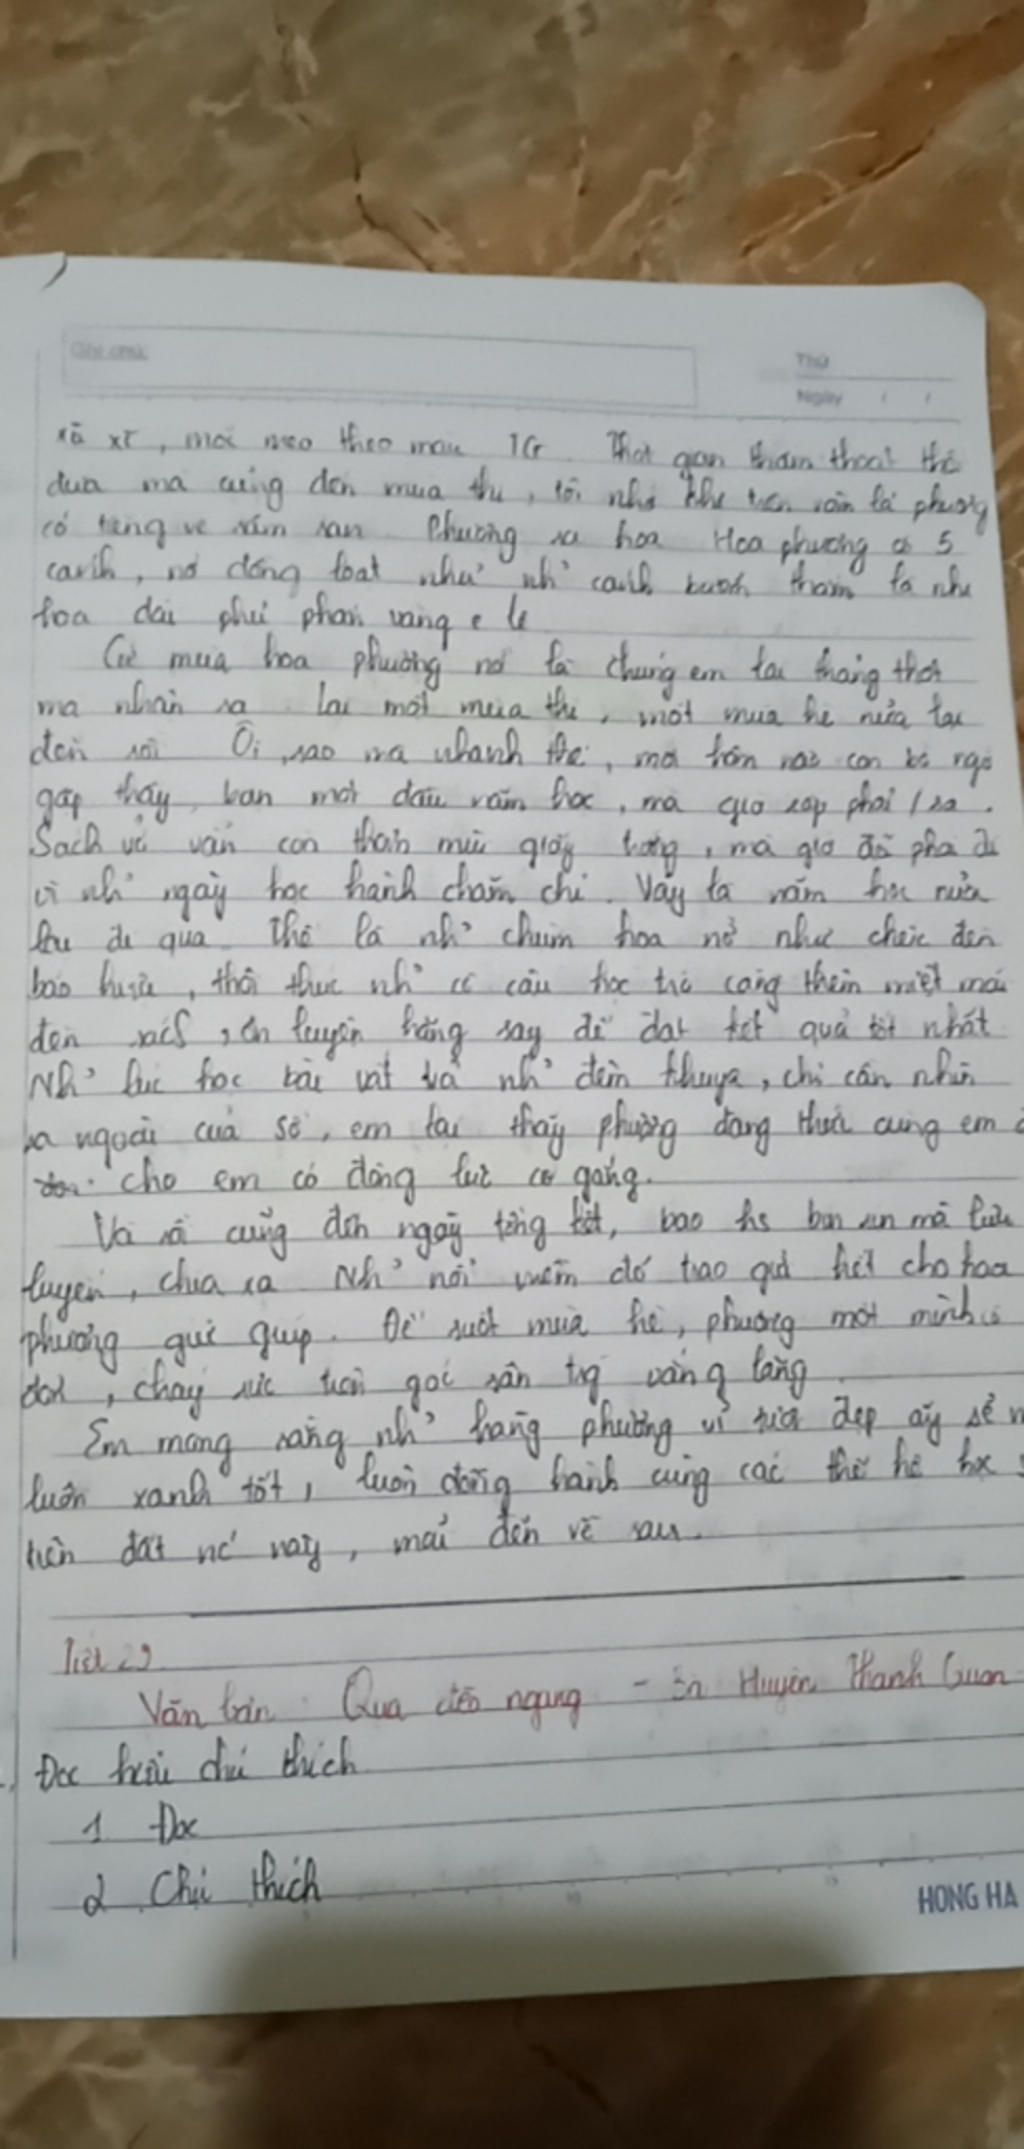 Ghi chú:
Thứ
Ngày / /
xù xì, méo theo màu TG. Thời gian thấm thoát thế
đưa mà cũng đến mùa thu, tới những vòm lá phượng
có tiếng ve râm ran. Phượng ra hoa. Hoa phượng có 5
cánh, nó đồng loạt như nh~ cánh bướm thắm là nhụy
hoa dài phủi phấn vàng e lệ
Cứ mùa hoa phượng nở là chúng em lại thảng thốt
mà nhận ra lại một mùa thi, một mùa hè nữa lại
đến rồi. Ôi, sao mà nhanh thế, mới hôm nào còn bỡ ngỡ
gặp thầy bạn mới đầu năm học, mà giờ sắp phải / xa.
Sách vở vẫn còn thơm mùi giấy trắng, mà giờ đã phai đi
vì nh~ ngày học hành chăm chỉ. Vậy là năm học nữa
lại đi qua. Thế là nh~ chùm hoa nở như chiếc đèn
báo hiệu, thôi thúc nh~ cô cậu học trò càng thêm miệt mài
đèn sách, ôn luyện hăng say để đạt kết quả tốt nhất
Nh~ lúc học bài vất vả nh~ đêm khuya, chỉ cần nhìn
ra ngoài cửa sổ, em lại thấy phượng đang thức cùng em
cho em có động lực cố gắng.
Và rồi cũng đến ngày tổng kết, bao hs bịn rịn mà lưu
luyến, chia xa. Nh~ nỗi niềm đó trao gửi hết cho hoa
phượng giữ giúp. Để suốt mùa hè, phượng một mình cô
đơn, cháy rực trên góc sân trg vắng lặng.
Em mong rằng nh~ hàng phượng vĩ tươi đẹp ấy sẽ
luôn xanh tốt, luôn đồng hành cùng các thế hệ học
trên đất nc' này, mãi đến về sau.
Tiết 29
Văn bản: Qua đèo ngang - Bà Huyện Thanh Quan
Đọc hiểu chú thích
1 Đọc
2 Chú thích
HONG HA